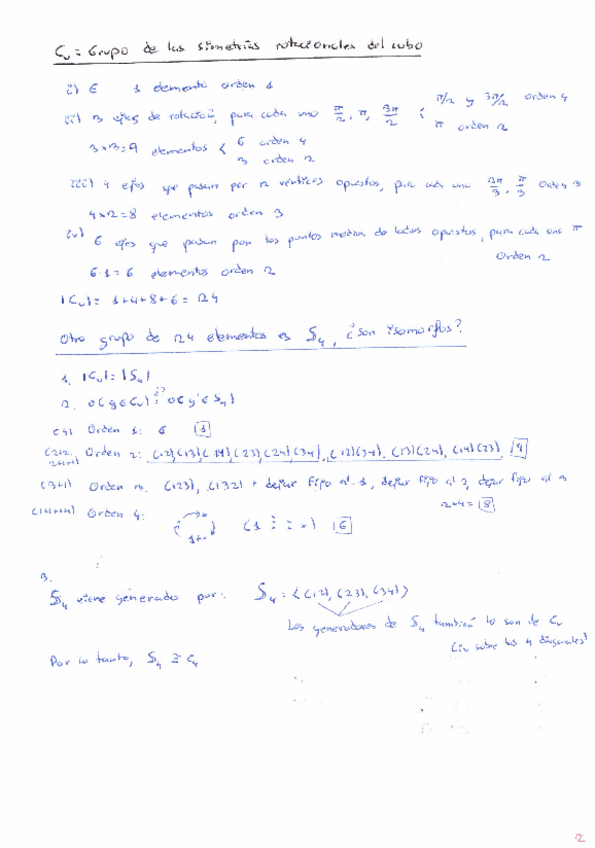 Cu = Grupo de las simetrías rotacionales del cubo
i) e 1 elemento orden 1
ii) 3 ejes de rotación, para cada uno π/2, π, 3π/2 < π/2 y 3π/2 orden 4
π orden 2
3×3=9 elementos < 6 orden 4
3 orden 2
iii) 4 ejes que pasan por 2 vértices opuestos, para cada uno orden 3
4×2=8 elementos orden 3
iv) 6 ejes que pasan por los puntos medios de lados opuestos, para cada uno π
orden 2
6·1=6 elementos orden 2
|Cu| = 1+9+8+6 = 24
Otro grupo de 24 elementos es S4, ¿son isomorfos?
1. |Cu| = |S4|
2. o(g∈Cu) = o(g'∈S4)
Orden 1: e 1
Orden 2: (12)(13)(14)(23)(24)(34), (12)(34), (13)(24), (14)(23) 9
(3+1) Orden 3: (123), (132) + dejar fijo al 1, dejar fijo al 2, dejar fijo al 3
2×4=8
Orden 4: 6
3.
S4 viene generado por: S4 = ((12), (23), (34))
Los generadores de S4 también lo son de Cu
sobre las 4 diagonales)
Por lo tanto, S4 ≅ Cu
2